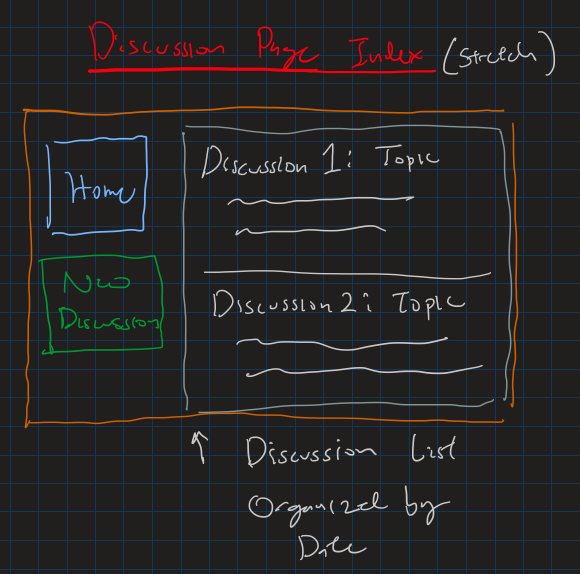 Discussion Page Index (Stretch)
Home
New
Discussion
Discussion 1: Topic
Discussion 2: Topic
↑ Discussion List
Organized by
Date